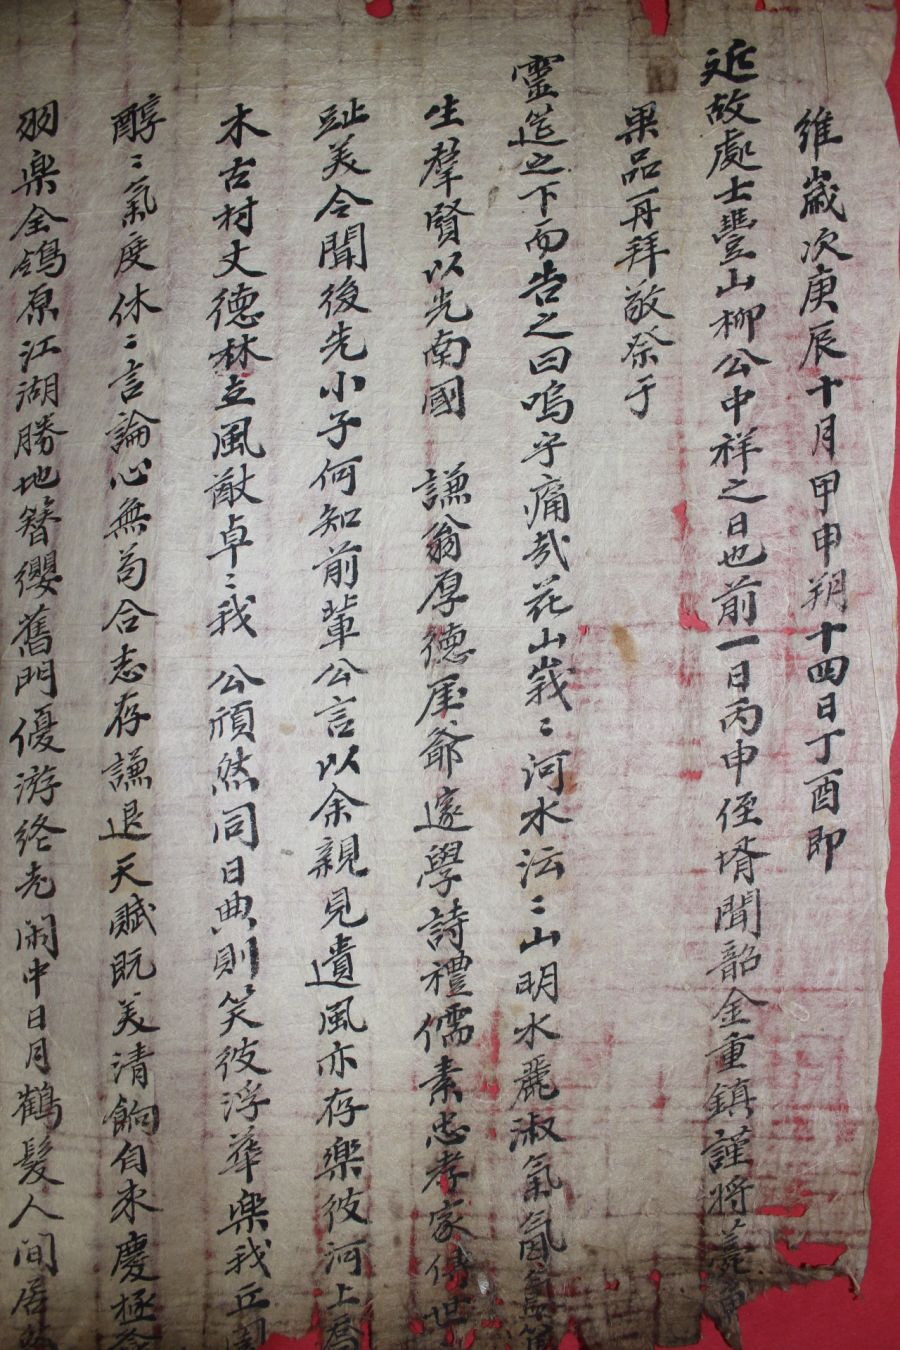 維歲次庚辰十月甲申朔十四日丁酉即
近故處士豐山柳公中祥之日也前一日丙申侄壻聞韶金重鎮謹將羞
果品再拜敬祭于
靈筵之下而告之曰嗚乎痛哉花山峩〻河水沄〻山明水麗淑氣氤
生羣賢以光南國 謙翁厚德厓爺邃學詩禮儒素忠孝家傳世
趾美令聞後先小子何知前輩公言以余親見遺風亦存樂彼河上喬
木古村丈德林立風猷卓〻我 公頎然同日典則笑彼浮華樂我丘園
醇〻氣度休〻言論心無苟合志存謙退天賦既美清餉自来慶極
羽樂全鴒原江湖勝地簪纓舊門優游終老閑中日月鶴髮人間居